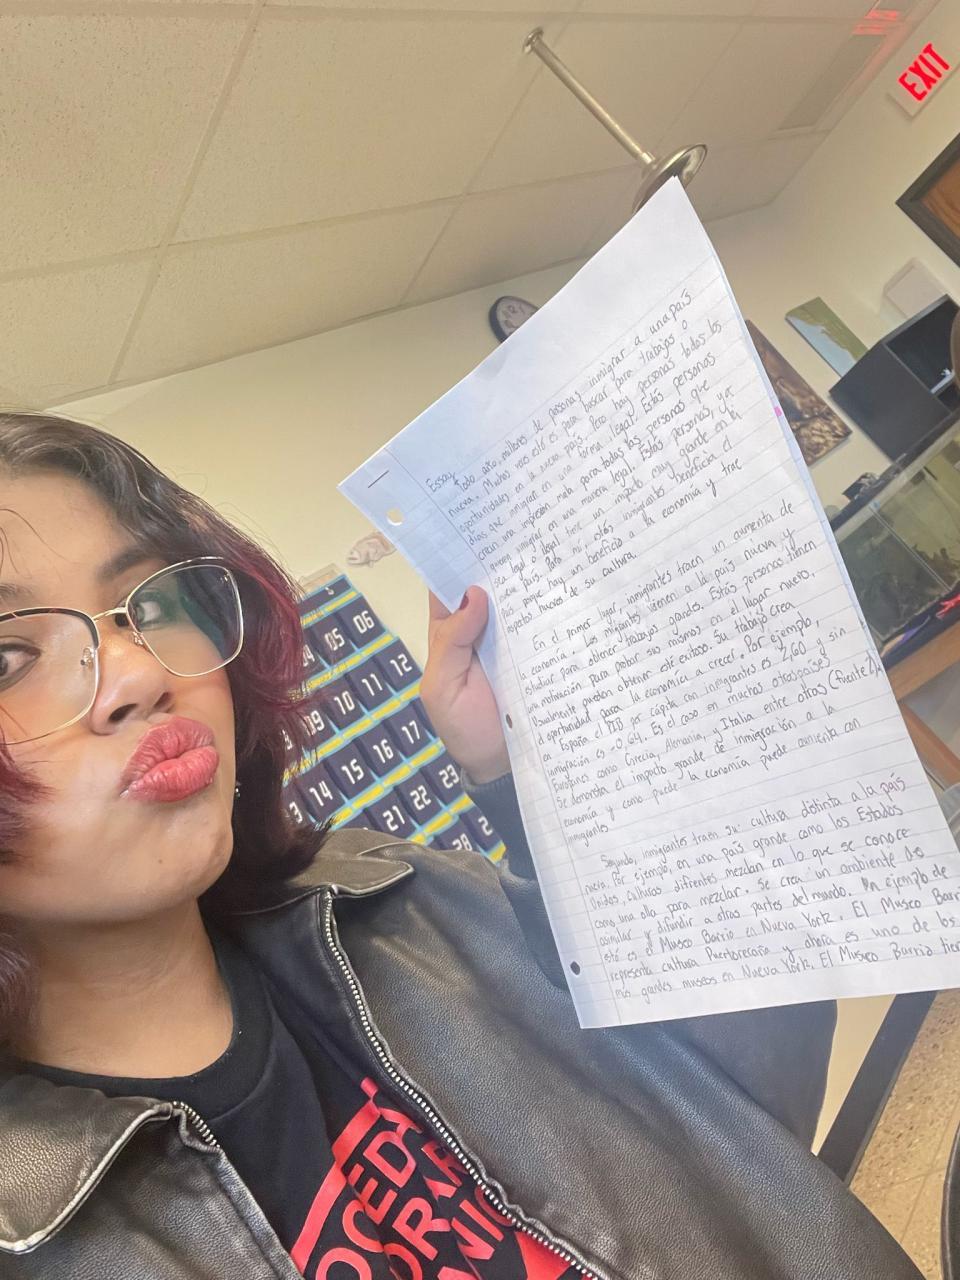 Essay
todo año, millones de personas inmigrar a una país
nueva. Muchas veces esté es para buscar para trabajos o
oportunidades en la nueva país. Pero hay personas todos los
días que inmigrar en una forma ilegal. Estás personas
crean una impresión mala para todas las personas que
quieren inmigrar en una manera legal. Estás personas, ya
sea legal o ilegal tiene un impacto muy grande en la
nueva país. Para mí, estós inmigrantes beneficia el
país porque hay un beneficio a la economía y trae
aspetos nueves de su cultura.
En el primer lugar, inmigrantes traen un aumenta de
la economía. Los migrantes vienen a la país nueva y
estudiar para obtener trabajos grandes. Estás personas tienen
una motivación para probar sus mismos en el lugar nuevo.
Usualmente pueden obtener esté exitoso. Su trabajó crea
el oportunidad para la economía a crecer. Por ejemplo,
en España el PIB per cápita con inmigrantes es 2,60 y sin
inmigración es -0,64. Es el caso en muchas otros países
Europanes como Grecia, Alemania, y Italia entre otras (fuente 2).
Se demonstra el imparco grande de inmigración a la
economía y como puede la economía puede aumenta con
inmigrantes
Segundo, inmigrantes traen su: cultura distinta a la país
nuevo. Por ejemplo, en una país grande como los Estados
Unidos, culturas difrentes mezclan en lo que se conoce
como una olla para mezclar. Se crea un ambiente de
asimilar y difundir a otras partes del mundo. Un ejemplo de
esté es el Museo Barrio en Nueva York. El Museo Barri
representa cultura Puertorecaña y ahora es uno de los
más grandes museos en Nueva York. El Museo Barrio tien
EXIT
04 05 06
09 10 11 12
14 15 16 17
21 22 23
28